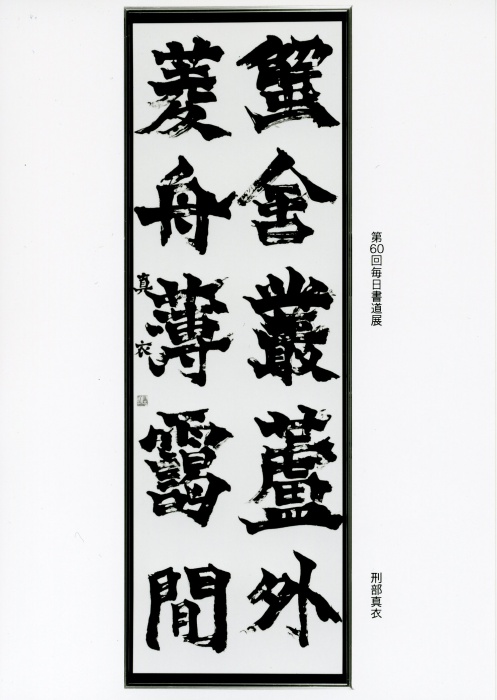 第60回毎日書道展
刑部真衣
蟹舎叢蘆外
菱舟薄靄間
真衣